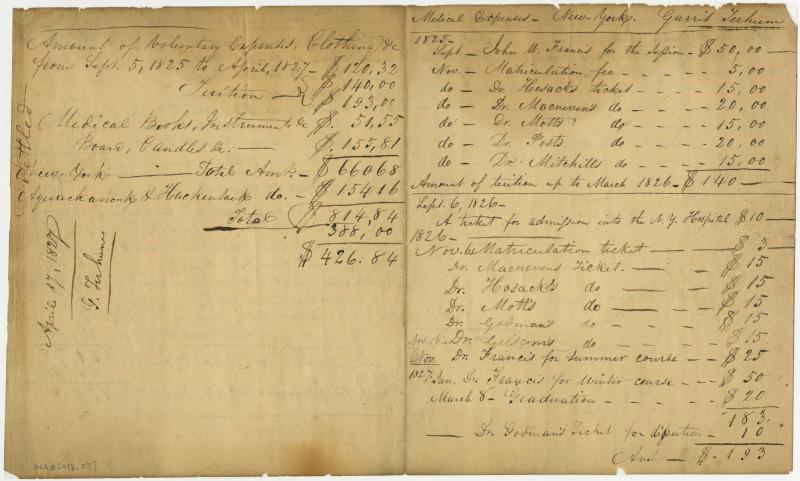 Amount of Voluntary Expenses, Clothing &c
from Sept. 5, 1825 to April, 1827 - $ 120,32
Tuition - $ 140,00
$ 193,00
Medical Books, Instruments &c $. 51.55
Board, Candles &c. - $. 155,81
New-York - Total Amt. - $ 660 68
Aquachanonk & Hackensack do. - $ 154 16
Total $ 814,84
388,00
$ 426.84
Settled -
April 17, 1827
G. Terhune
acc#2018.037
Medical Expenses - New-York. Garrit Terhune
1825 -
Sept. - John W. Francis for the Session - $ 50,00 -
Nov. - Matriculation fee - - - - 5,00
do - Dr. Hosacks ticket - - - 15,00
do - Dr. Macnevens do - - - 20,00
do - Dr. Motts do - - - 15,00
do - Dr. Posts do - - - 20,00
do - Dr. Mitchills do - - - 15,00
Amount of tuition up to March 1826 - $ 140 -
Sept. 6, 1826 -
A ticket for admission into the N. Y. Hospital $ 10 -
1826 -
Nov. 6 Matriculation ticket - - $ 3
Dr. Macnevens Ticket. - - - $ 15
Dr. Hosacks do - - - $ 15
Dr. Motts do - - - $ 15
Dr. Godman's do - - - $ 15
Nov. 16 - Dr. Griscoms do - - - $ 15.
Nov. Dr. Francis for Summer course - - $ 25
1827. Jan. Dr. Francis for Winter course - - $ 50
March 8 - Graduation - - - - $ 20
183.
- Dr. Godman's Ticket for disection - 10
Amt - $ - 193